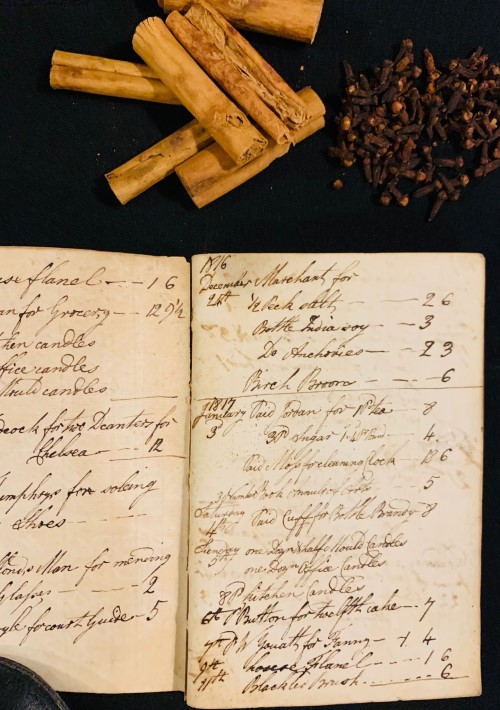 flanel - - 1 6
for Grocery - 12 9½
candles
office candles
Mould candles
for two Decanters for
Chelsea - - 12
for soleing
Shoes
Man for mending
glasses - - - 2
for court Guide - 5
1816
December Marchant for
24th ½ Peck salt - - 2 6
Bottle India soy - - 3
Do Anchovies - - 2 3
Birch Broom - - - 6
1817
January Paid for 1 lb tea - 8
3 3 P Sugar - 4
Paid for cleaning Clock - 10 6
5
Saturday
4th Paid Cuff for Bottle Brandy 8
Sunday one Dozn & half Mould Candles
5th one Dozn Office Candles
8 P Kitchen Candles
6th P Button for twelfth cake - 7
7th P W for Fanny - 1 4
9th flanel - - - 1 6
11th Blacklea Brush - - - 6